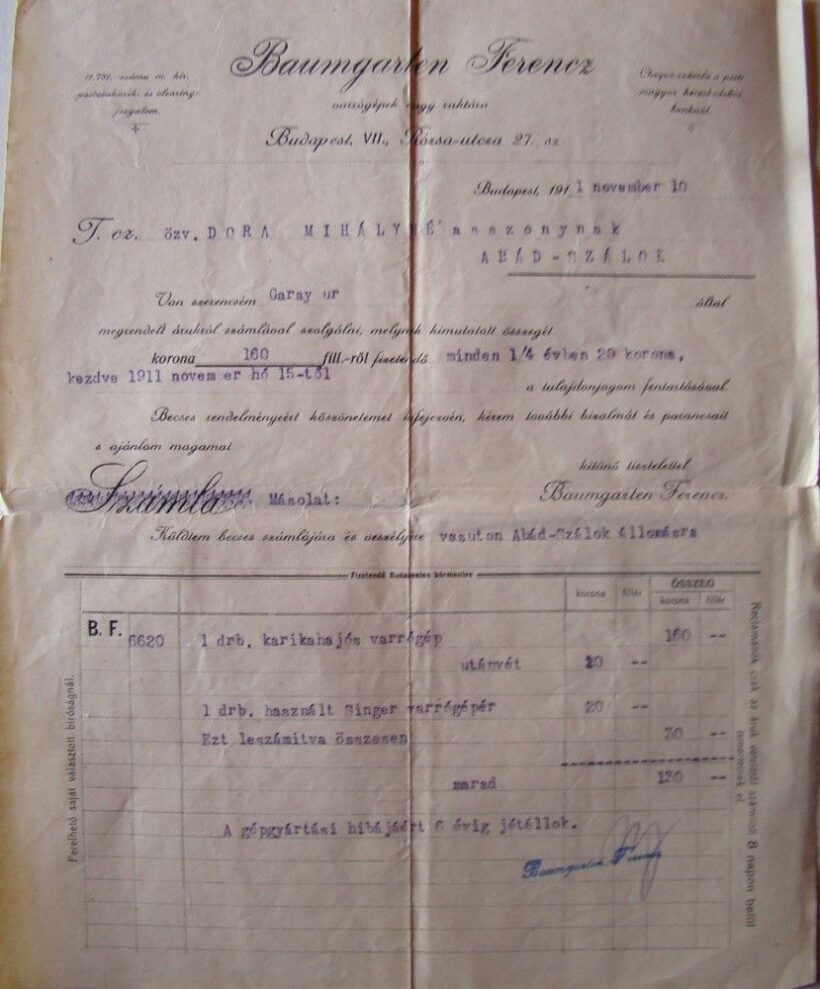 Baumgarten Ferencz
11.781. száma m. kir.
postatakarék és clearing
forgalom.
Cheque-számla a pesti
magyar kereskedelmi
banknál.
varrógépek nagy raktára
Budapest, VII., Rózsa-utcza 27. sz
Budapest, 1911 november 10
T. cz. özv. DORA MIHÁLYNÉ asszonynak
ABÁD-SZÁLOK
Van szerencsém Garay ur által
megrendelt árukról számlával szolgálni, melynek kimutatott összegét
korona 160 fill.-ről fizetendő minden 1/4 évben 20 korona,
kezdve 1911 november hó 15-től
a tulajdonjogom fentartásával.
Becses rendelményeért köszönetemet kifejezvén, kérem további bizalmát és parancsait
s ajánlom magamat
kitünő tisztelettel
Számla Másolat: Baumgarten Ferencz.
Küldtem becses számlájára és veszélyére vasuton Abád-Szálok állomásra
Fizetendő Budapesten bármentve
korona fillér ÖSSZEG
korona fillér
B. F. 6620 1 drb. karikahajós varrógép 160 --
utánvét 10 --
1 drb. használt Singer varrógépér 20 --
Ezt leszámitva összesen 30 --
marad 130 --
A gépgyártási hibájáért 6 évig jótállok.
Baumgarten Ferencz
Perelhető saját választott biróságnál.
Reclamatiók csak az áruk vételétől számitva 8 napon belül